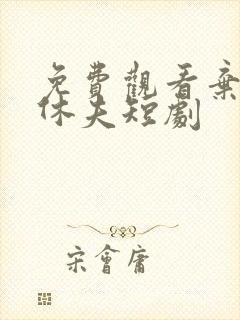 免費觀看棄
休夫短劇
宋會庸